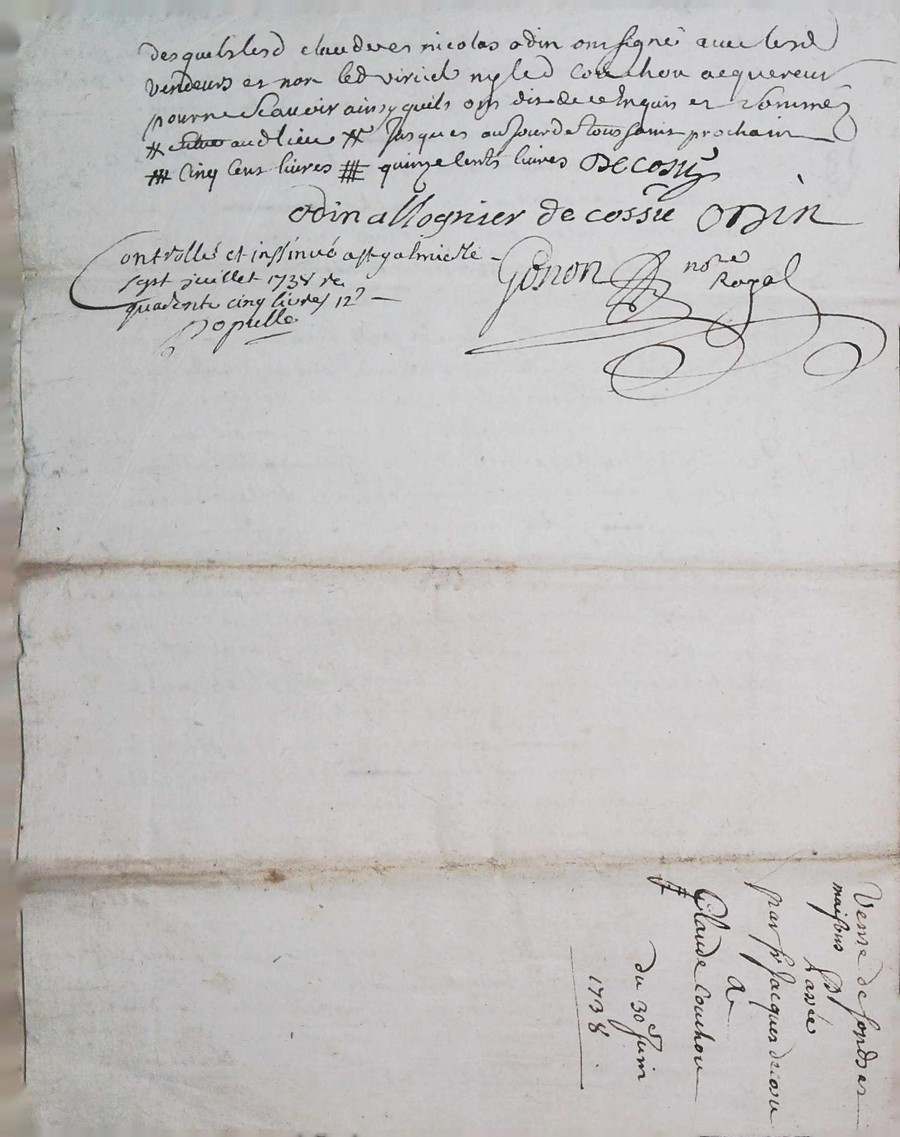 desquels lesd claude et nicolas odin ont signé avec lesd
vendeurs et non led viricel ny led couchou acquereur
pour ne scavoir ainsy quils ont dit de ce Enquis et sommés
# audlieu # Jusques au Jour de toussaint prochain
# Cinq cent livres # quinze cents livres De cossu
odin allognier de cossu Odin
Controllé et insinué a st galmier le
sept juillet 1738 re
quarente cinq livres 12s
Gonon nore Royal
Vente de fonds et
maisons
passée
par sr Jacques decossu
A
Claude Couchou
du 30 Juin
1738